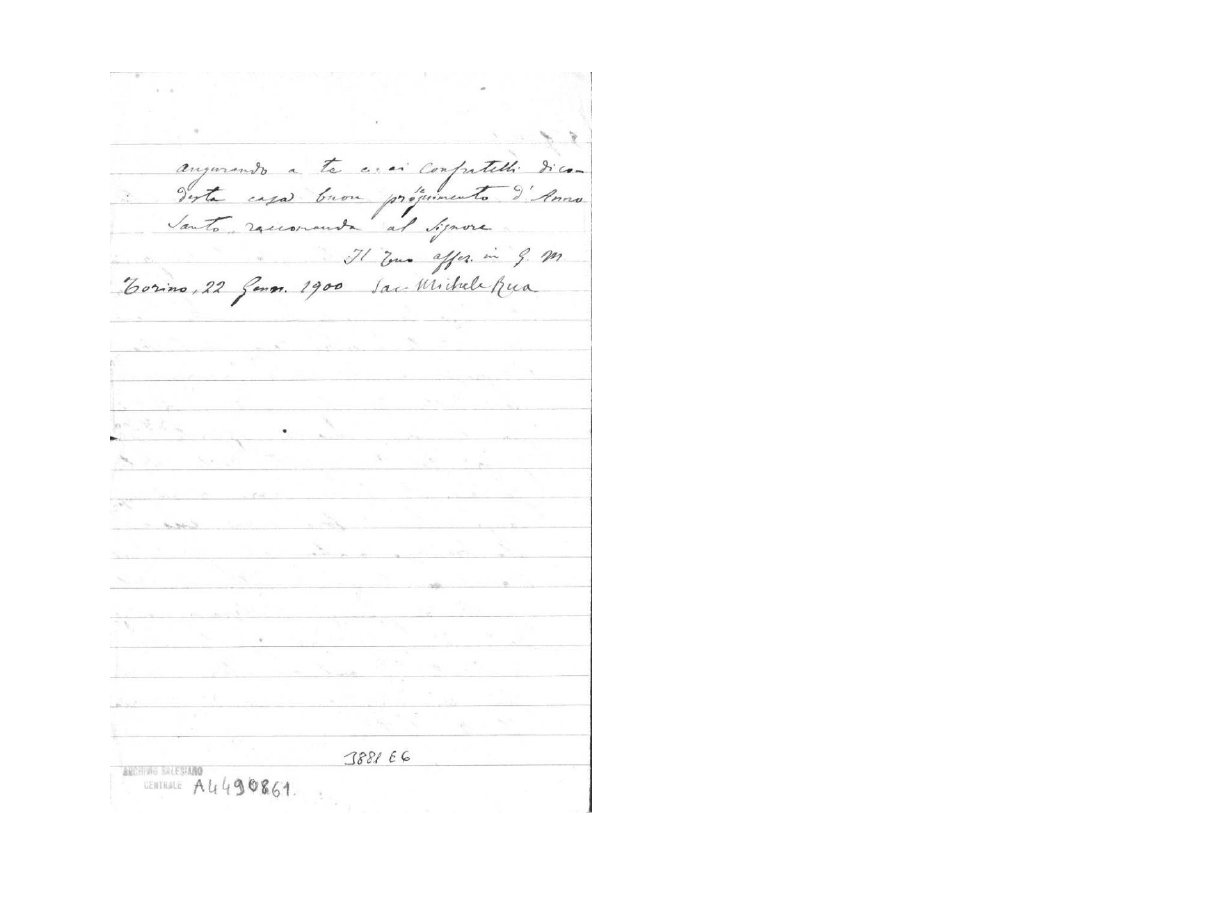 augurando a te e ai Confratelli di co=
desta casa buon proseguimento d'Anno
Santo raccomanda al Signore
Il tuo affez. in G. M
Torino, 22 Genn. 1900 Sac. Michele Rua
3881 E6
ARCHIVIO SALESIANO
CENTRALE A4490861.